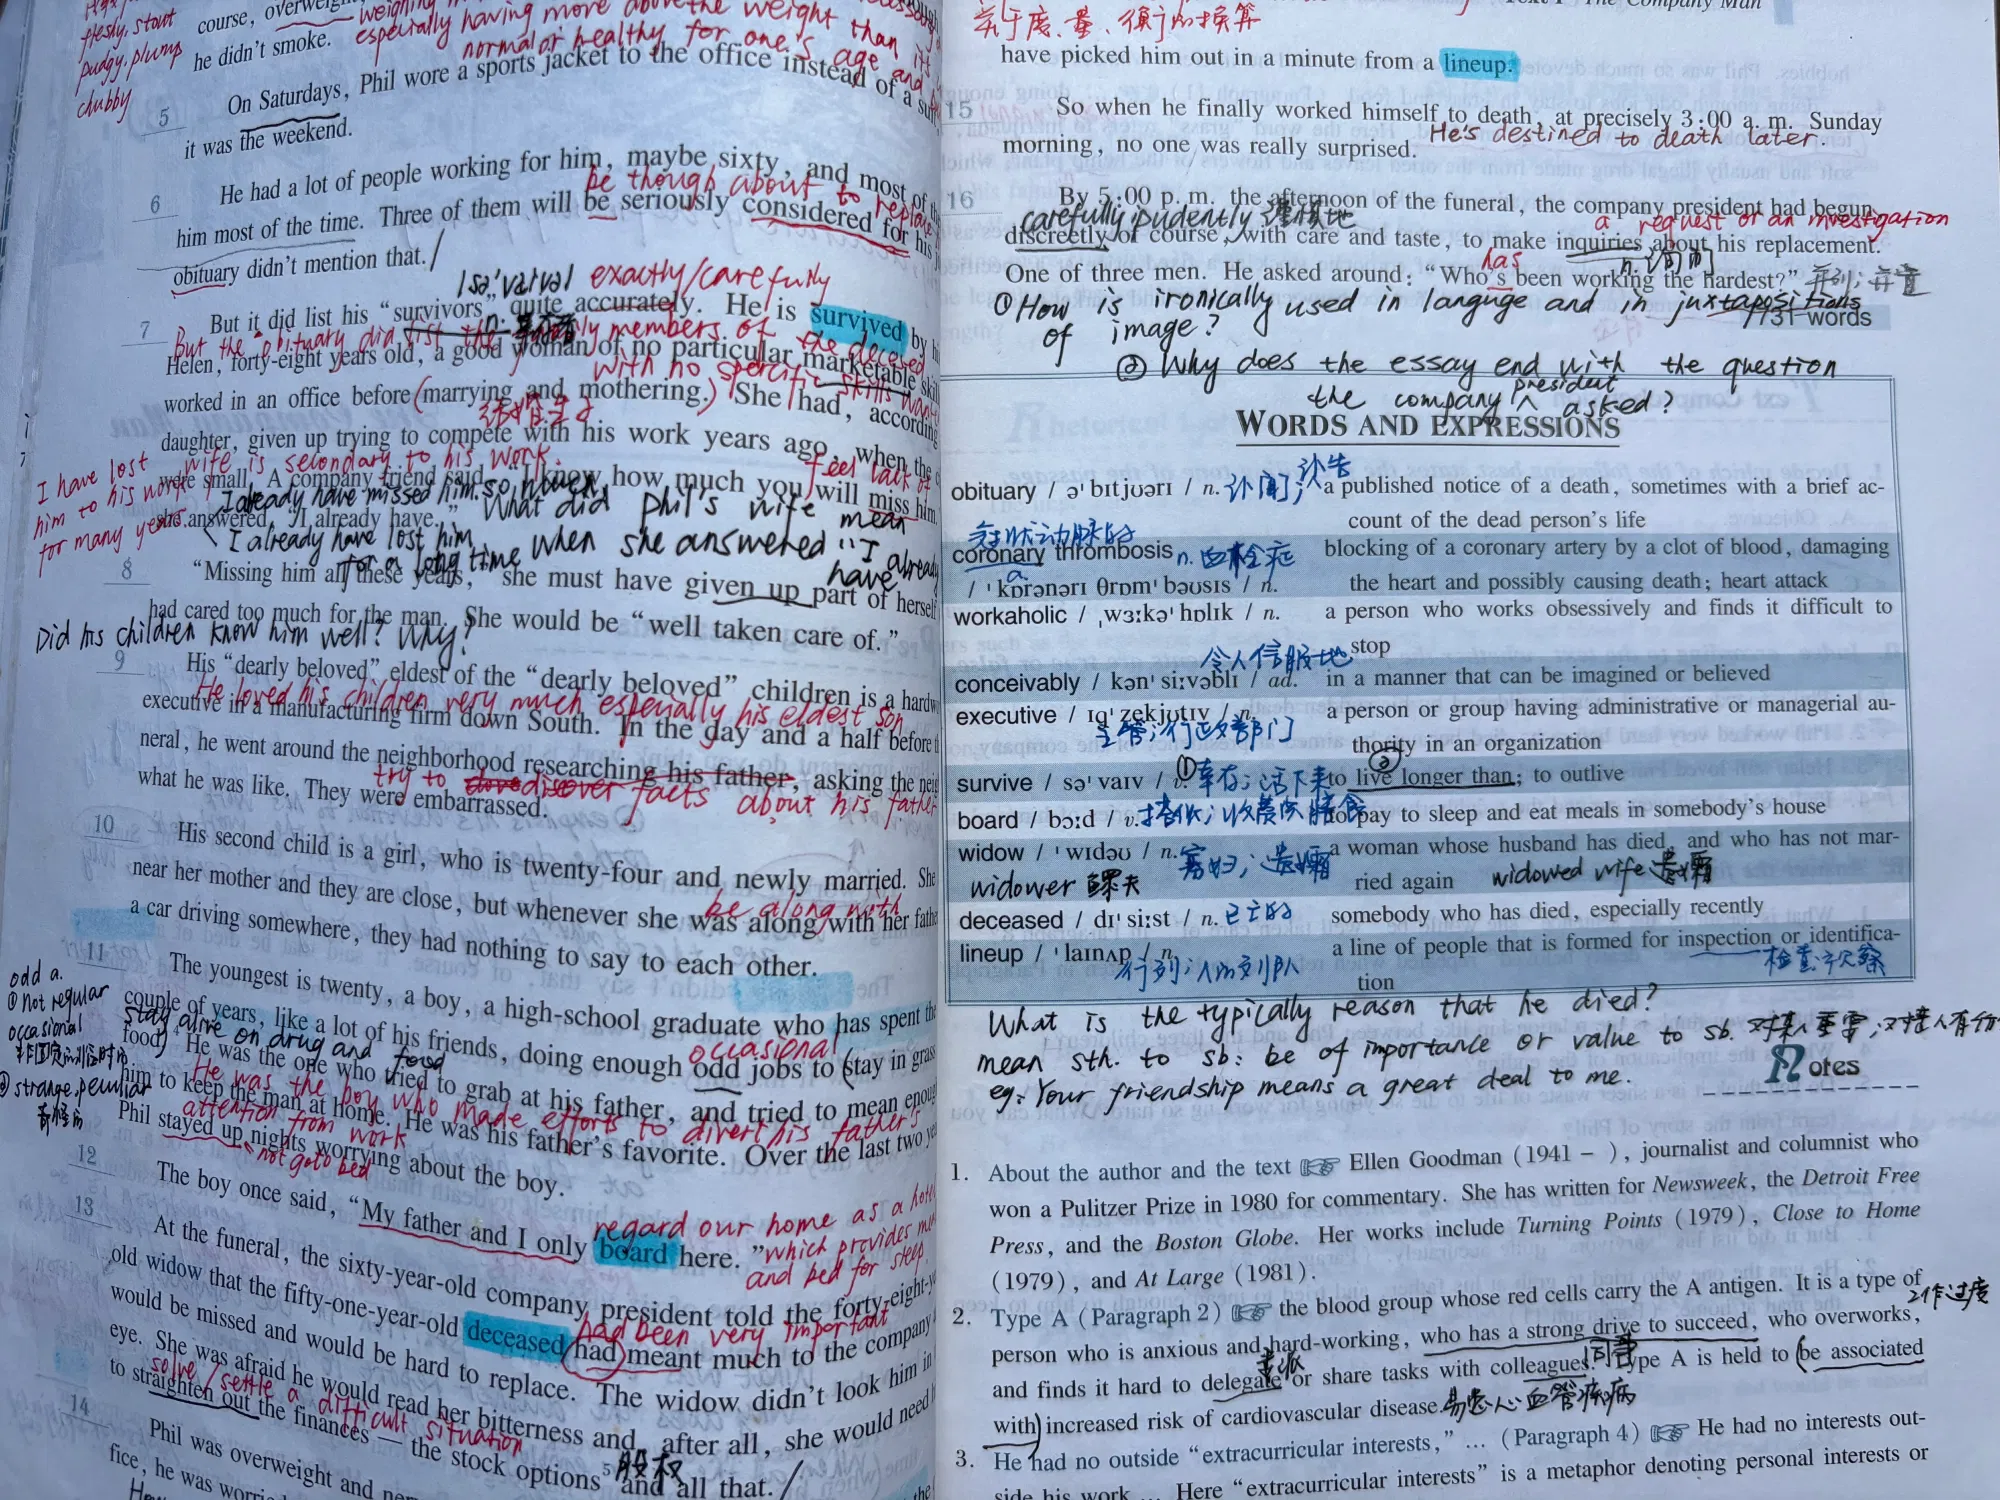 fleshy, stout
pudgy, plump
chubby
course, overweight
he didn't smoke.
especially having more above the weight than
normal or healthy for one's age and
5 On Saturdays, Phil wore a sports jacket to the office instead of a
it was the weekend.
6 He had a lot of people working for him, maybe sixty, and most of
be though about to replace
him most of the time. Three of them will be seriously considered for his
obituary didn't mention that.
/sə'vaɪvə/ exactly/carefully
7 But it did list his "survivors" quite accurately. He is survived by
n. 幸存者
but the obituary did list the family members of the deceased
Helen, forty-eight years old, a good woman of no particular marketable
with no specific skills
worked in an office before (marrying and mothering.) She had, according
结婚生子
daughter, given up trying to compete with his work years ago, when the
wife is secondary to his work.
were small. A company friend said, "I know how much you will miss him.
feel lack of
I have lost
him to his work
for many years
I already have missed him.
she answered, "I already have."
What did phil's wife mean
I already have lost him
for a long time
when she answered "I already
have
8 "Missing him all these years," she must have given up part of herself
had cared too much for the man. She would be "well taken care of."
Did his children know him well? Why?
9 His "dearly beloved" eldest of the "dearly beloved" children is a
He loved his children very much especially his eldest son
executive in a manufacturing firm down South. In the day and a half before
neral, he went around the neighborhood researching his father, asking the
try to discover facts about his father
what he was like. They were embarrassed.
10 His second child is a girl, who is twenty-four and newly married. She
near her mother and they are close, but whenever she was along with her
be along with
a car driving somewhere, they had nothing to say to each other.
11 The youngest is twenty, a boy, a high-school graduate who has spent the
couple of years, like a lot of his friends, doing enough odd jobs to (stay in grass
stay alive on drug and food
occasional
odd a.
① Not regular
occasional
② strange, peculiar
奇怪的
food He was the one who tried to grab at his father, and tried to mean enough
He was the boy who made efforts to divert his father's
him to keep the man at home. He was his father's favorite. Over the last two
attention from work
Phil stayed up nights worrying about the boy.
not go to bed
12 The boy once said, "My father and I only board here."
regard our home as a hotel
which provides
and bed for sleep.
13 At the funeral, the sixty-year-old company president told the
old widow that the fifty-one-year-old deceased had meant much to the company
had been very important
would be missed and would be hard to replace. The widow didn't look him in
eye. She was afraid he would read her bitterness and, after all, she would need
solve/settle a difficult situation
to straighten out the finances — the stock options⁵ and all that.
股权
14 Phil was overweight and
fice, he was
关于度、量、衡的换算
have picked him out in a minute from a lineup.
15 So when he finally worked himself to death, at precisely 3:00 a. m. Sunday
He's destined to death later.
morning, no one was really surprised.
16 By 5:00 p. m. the afternoon of the funeral, the company president had begun,
carefully, pudently 谨慎地
a request or an investigation
discreetly of course, with care and taste, to make inquiries about his replacement.
has
n. 询问
One of three men. He asked around: "Who's been working the hardest?"
并列;并置
① How is ironically used in languge and in juxtapositions
of image?
731 words
② Why does the essay end with the question
the company president asked?
WORDS AND EXPRESSIONS
obituary / ə'bɪtjʊərɪ / n. 讣闻; 讣告 a published notice of a death, sometimes with a brief ac-
count of the dead person's life
冠状动脉的
coronary thrombosis n. 血栓症 blocking of a coronary artery by a clot of blood, damaging
/ 'kɒrənərɪ θrɒm'bəʊsɪs / n. the heart and possibly causing death; heart attack
workaholic / ˌwɜːkə'hɒlɪk / n. a person who works obsessively and finds it difficult to
stop
令人信服地
conceivably / kən'siːvəblɪ / ad. in a manner that can be imagined or believed
executive / ɪɡ'zekjʊtɪv / n. a person or group having administrative or managerial au-
主管;行政部门 thority in an organization
survive / sə'vaɪv / v. ①幸存;活下来 ② to live longer than; to outlive
board / bɔːd / v. 搭伙;收费供膳食 to pay to sleep and eat meals in somebody's house
widow / 'wɪdəʊ / n. 寡妇;遗孀 a woman whose husband has died, and who has not mar-
widower 鳏夫 ried again widowed wife 遗孀
deceased / dɪ'siːst / n. 已亡的 somebody who has died, especially recently
lineup / 'laɪnʌp / n. a line of people that is formed for inspection or identifica-
行列;人的列队 tion 检查;视察
What is the typically reason that he died?
mean sth. to sb: be of importance or value to sb. 对某人重要;对某人有
eg: Your friendship means a great deal to me.
Notes
1. About the author and the text ☞ Ellen Goodman (1941 – ), journalist and columnist who
won a Pulitzer Prize in 1980 for commentary. She has written for Newsweek, the Detroit Free
Press, and the Boston Globe. Her works include Turning Points (1979), Close to Home
(1979), and At Large (1981).
2. Type A (Paragraph 2) ☞ the blood group whose red cells carry the A antigen. It is a type of
工作过度
person who is anxious and hard-working, who has a strong drive to succeed, who overworks,
委派 同事
and finds it hard to delegate or share tasks with colleagues. Type A is held to (be associated
with) increased risk of cardiovascular disease. 易患心血管疾病
3. He had no outside "extracurricular interests," ... (Paragraph 4) ☞ He had no interests out-
side his work ... Here "extracurricular interests" is a metaphor denoting personal interests or